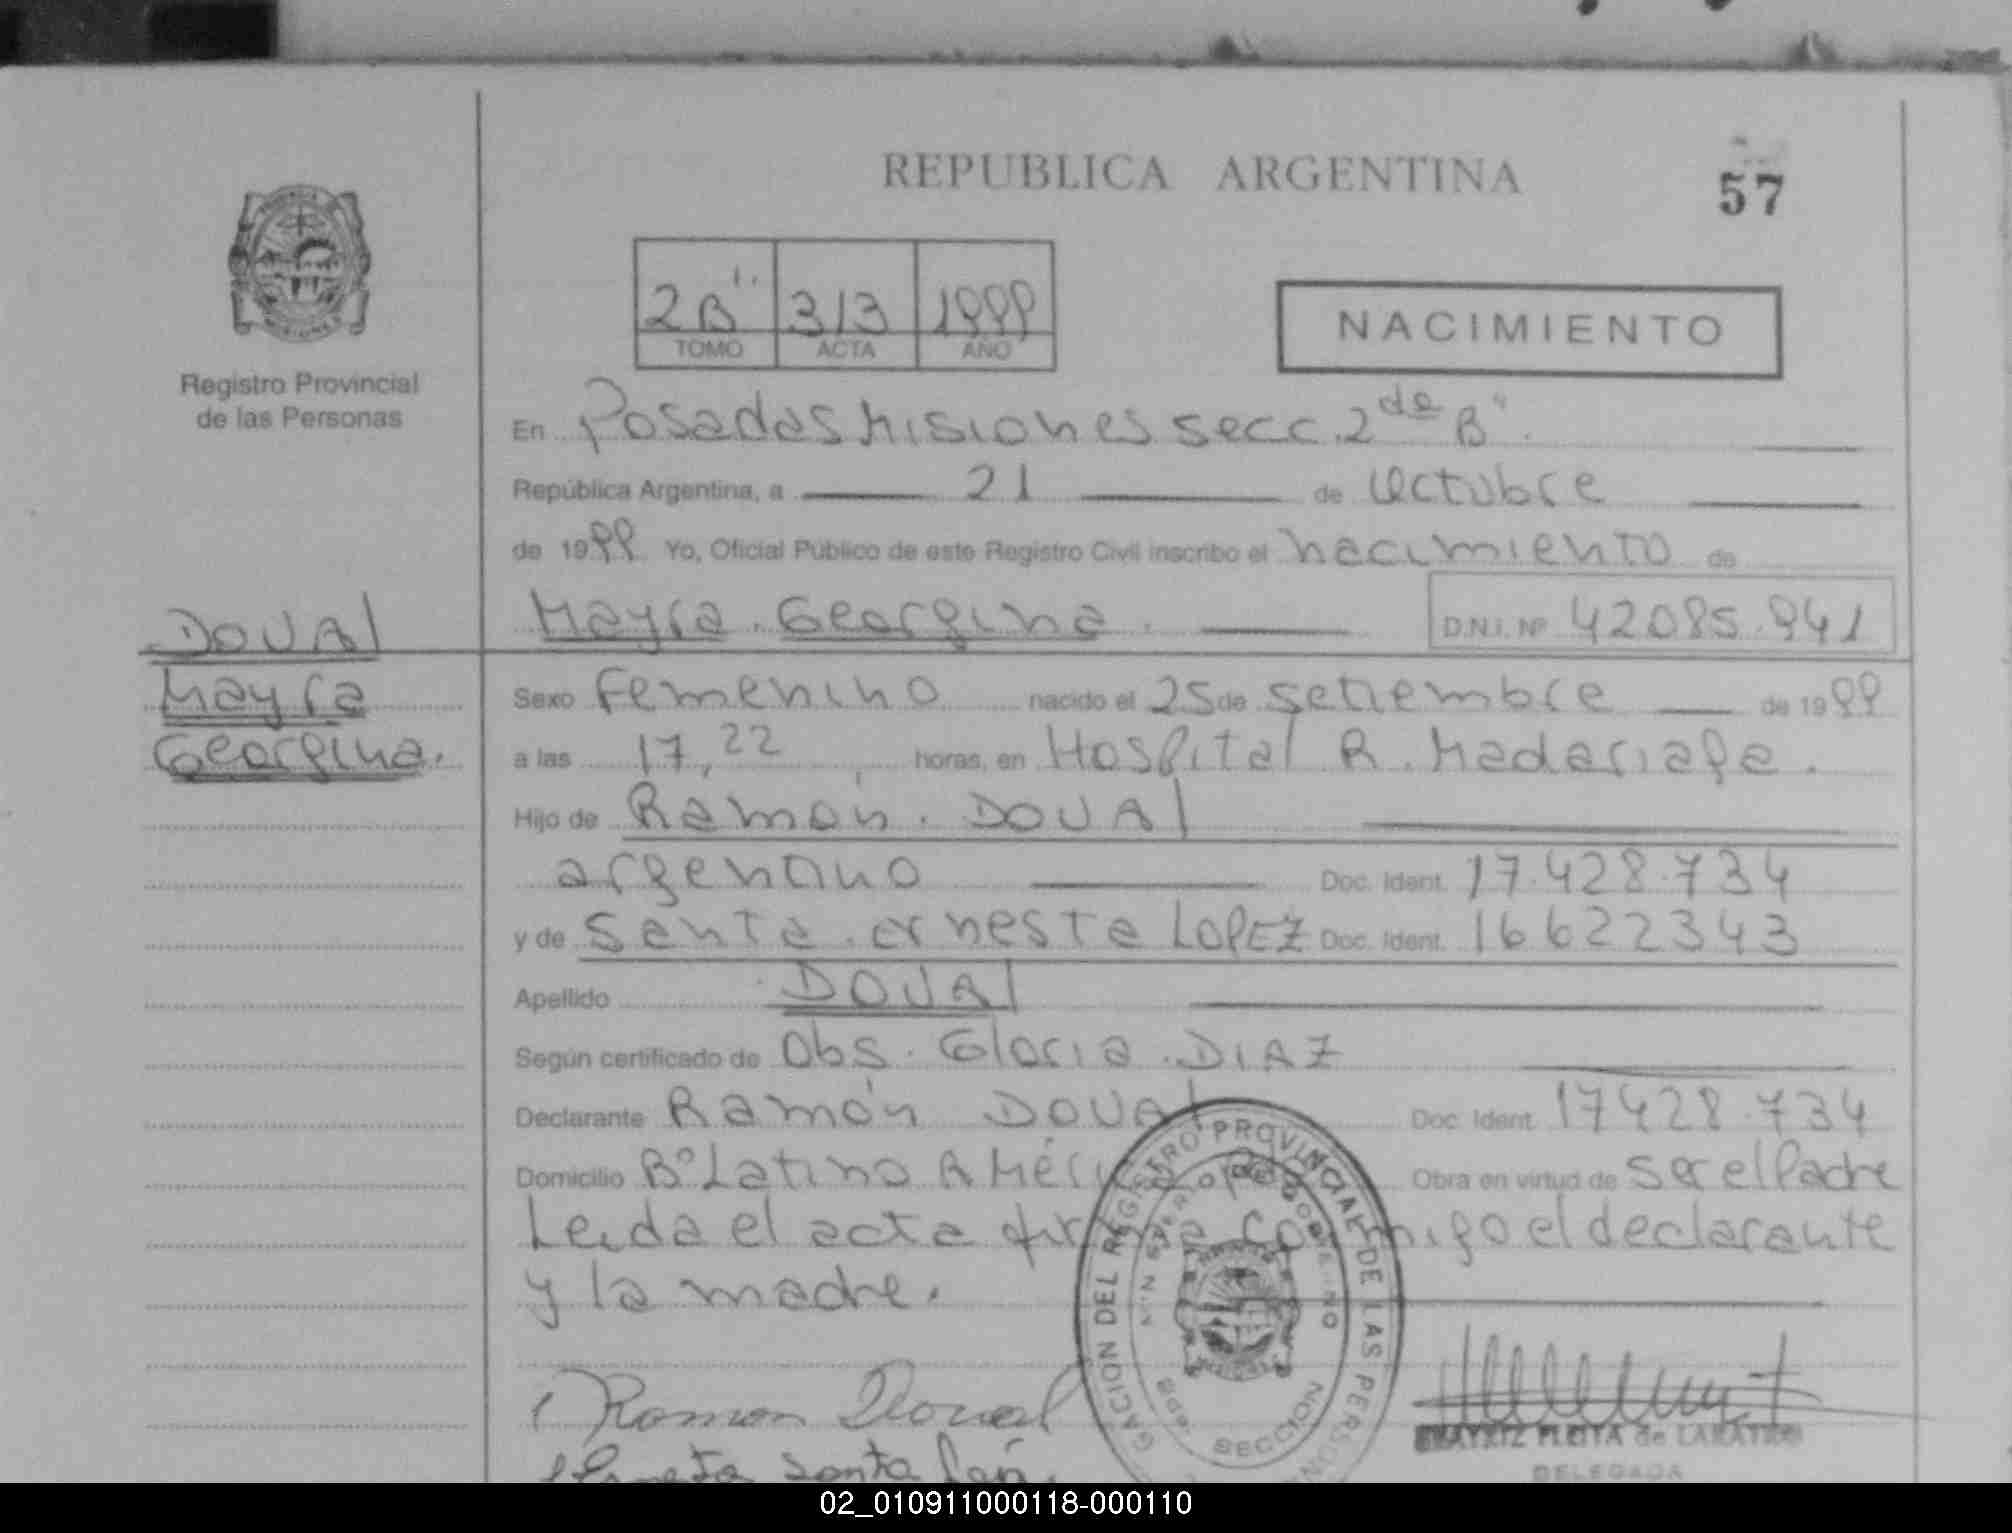 REPUBLICA ARGENTINA
57
2B" 313 1999
TOMO ACTA AÑO
NACIMIENTO
Registro Provincial
de las Personas
En Posadas Misiones secc. 2da B"
República Argentina, a 21 de Octubre
de 1999 Yo, Oficial Público de este Registro Civil inscribo el nacimiento de
Mayra Georgina. D.N.I. Nº 42085.941
DOVAl
Mayra
Georgina.
Sexo Femenino nacido el 25 de setiembre de 1999
a las 17,22 horas, en Hospital R. Madariaga.
Hijo de Ramón. DOVAl
argentino Doc. Ident. 17.428.734
y de Santa ernesta LOPEZ Doc. Ident. 16622343
Apellido DOVAl
Según certificado de Obs. Gloria. DIAZ
Declarante Ramón DOVAl Doc. Ident. 17428.734
Domicilio Bº Latino América Obra en virtud de Ser el Padre
Leida el acta firma conmigo el declarante
y la madre.
Ramon Doval
Santa
REGISTRO PROVINCIAL DE LAS PERSONAS
SECCION
DELEGADA
02_010911000118-000110